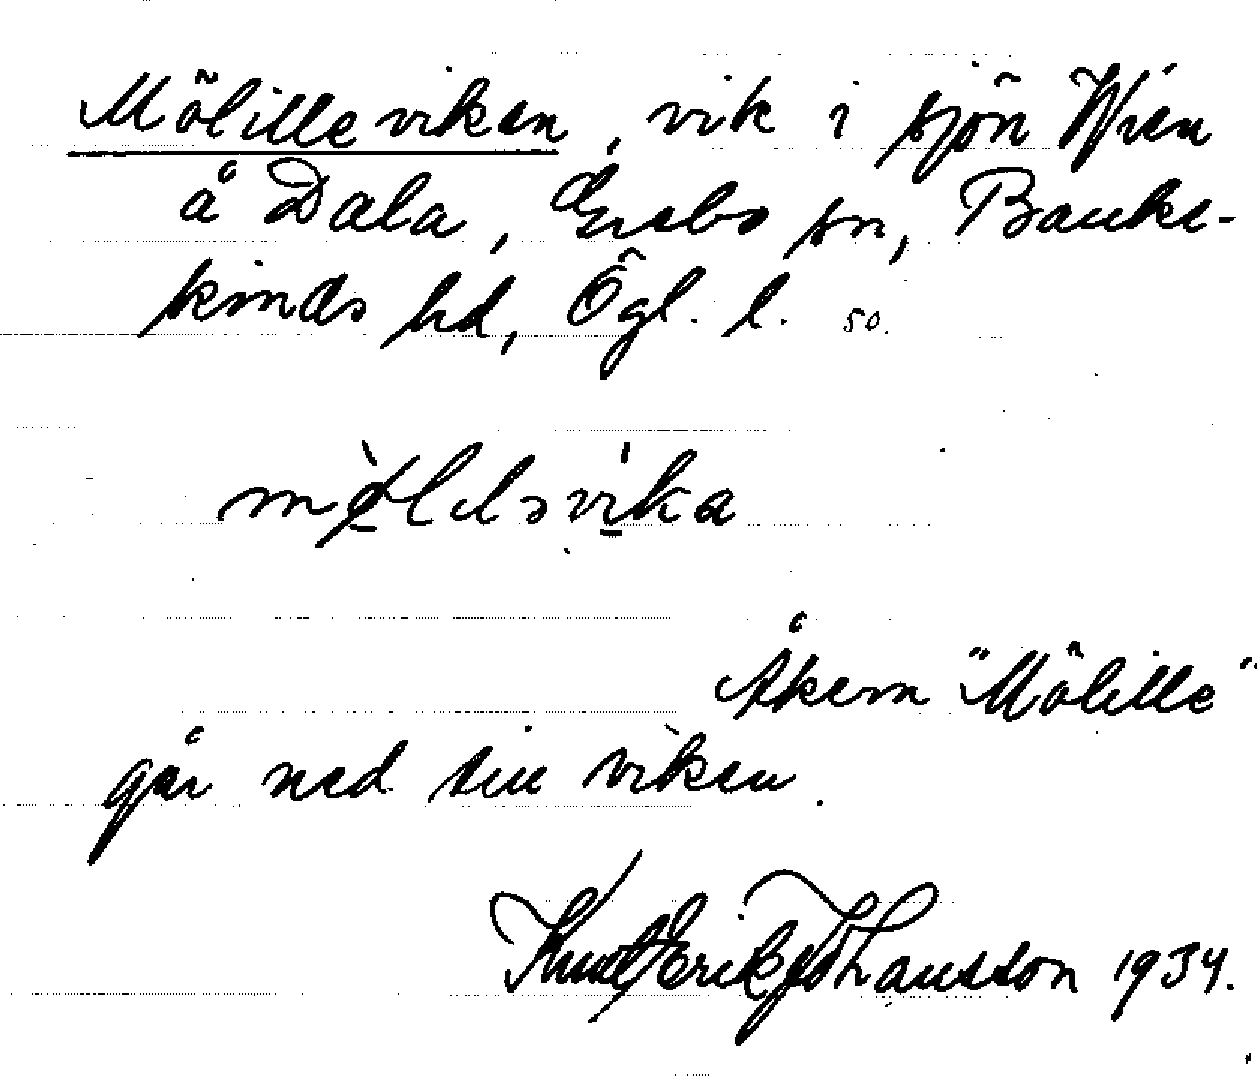 Mölilleviken, vik i sjön Wien
å Dala, Gusbo sn, Banke-
kinds hd, Ögl. l. 50.
mølelsvika
Åkern "Mölille"
går ned till viken.
Knut Erik Johansson 1934.